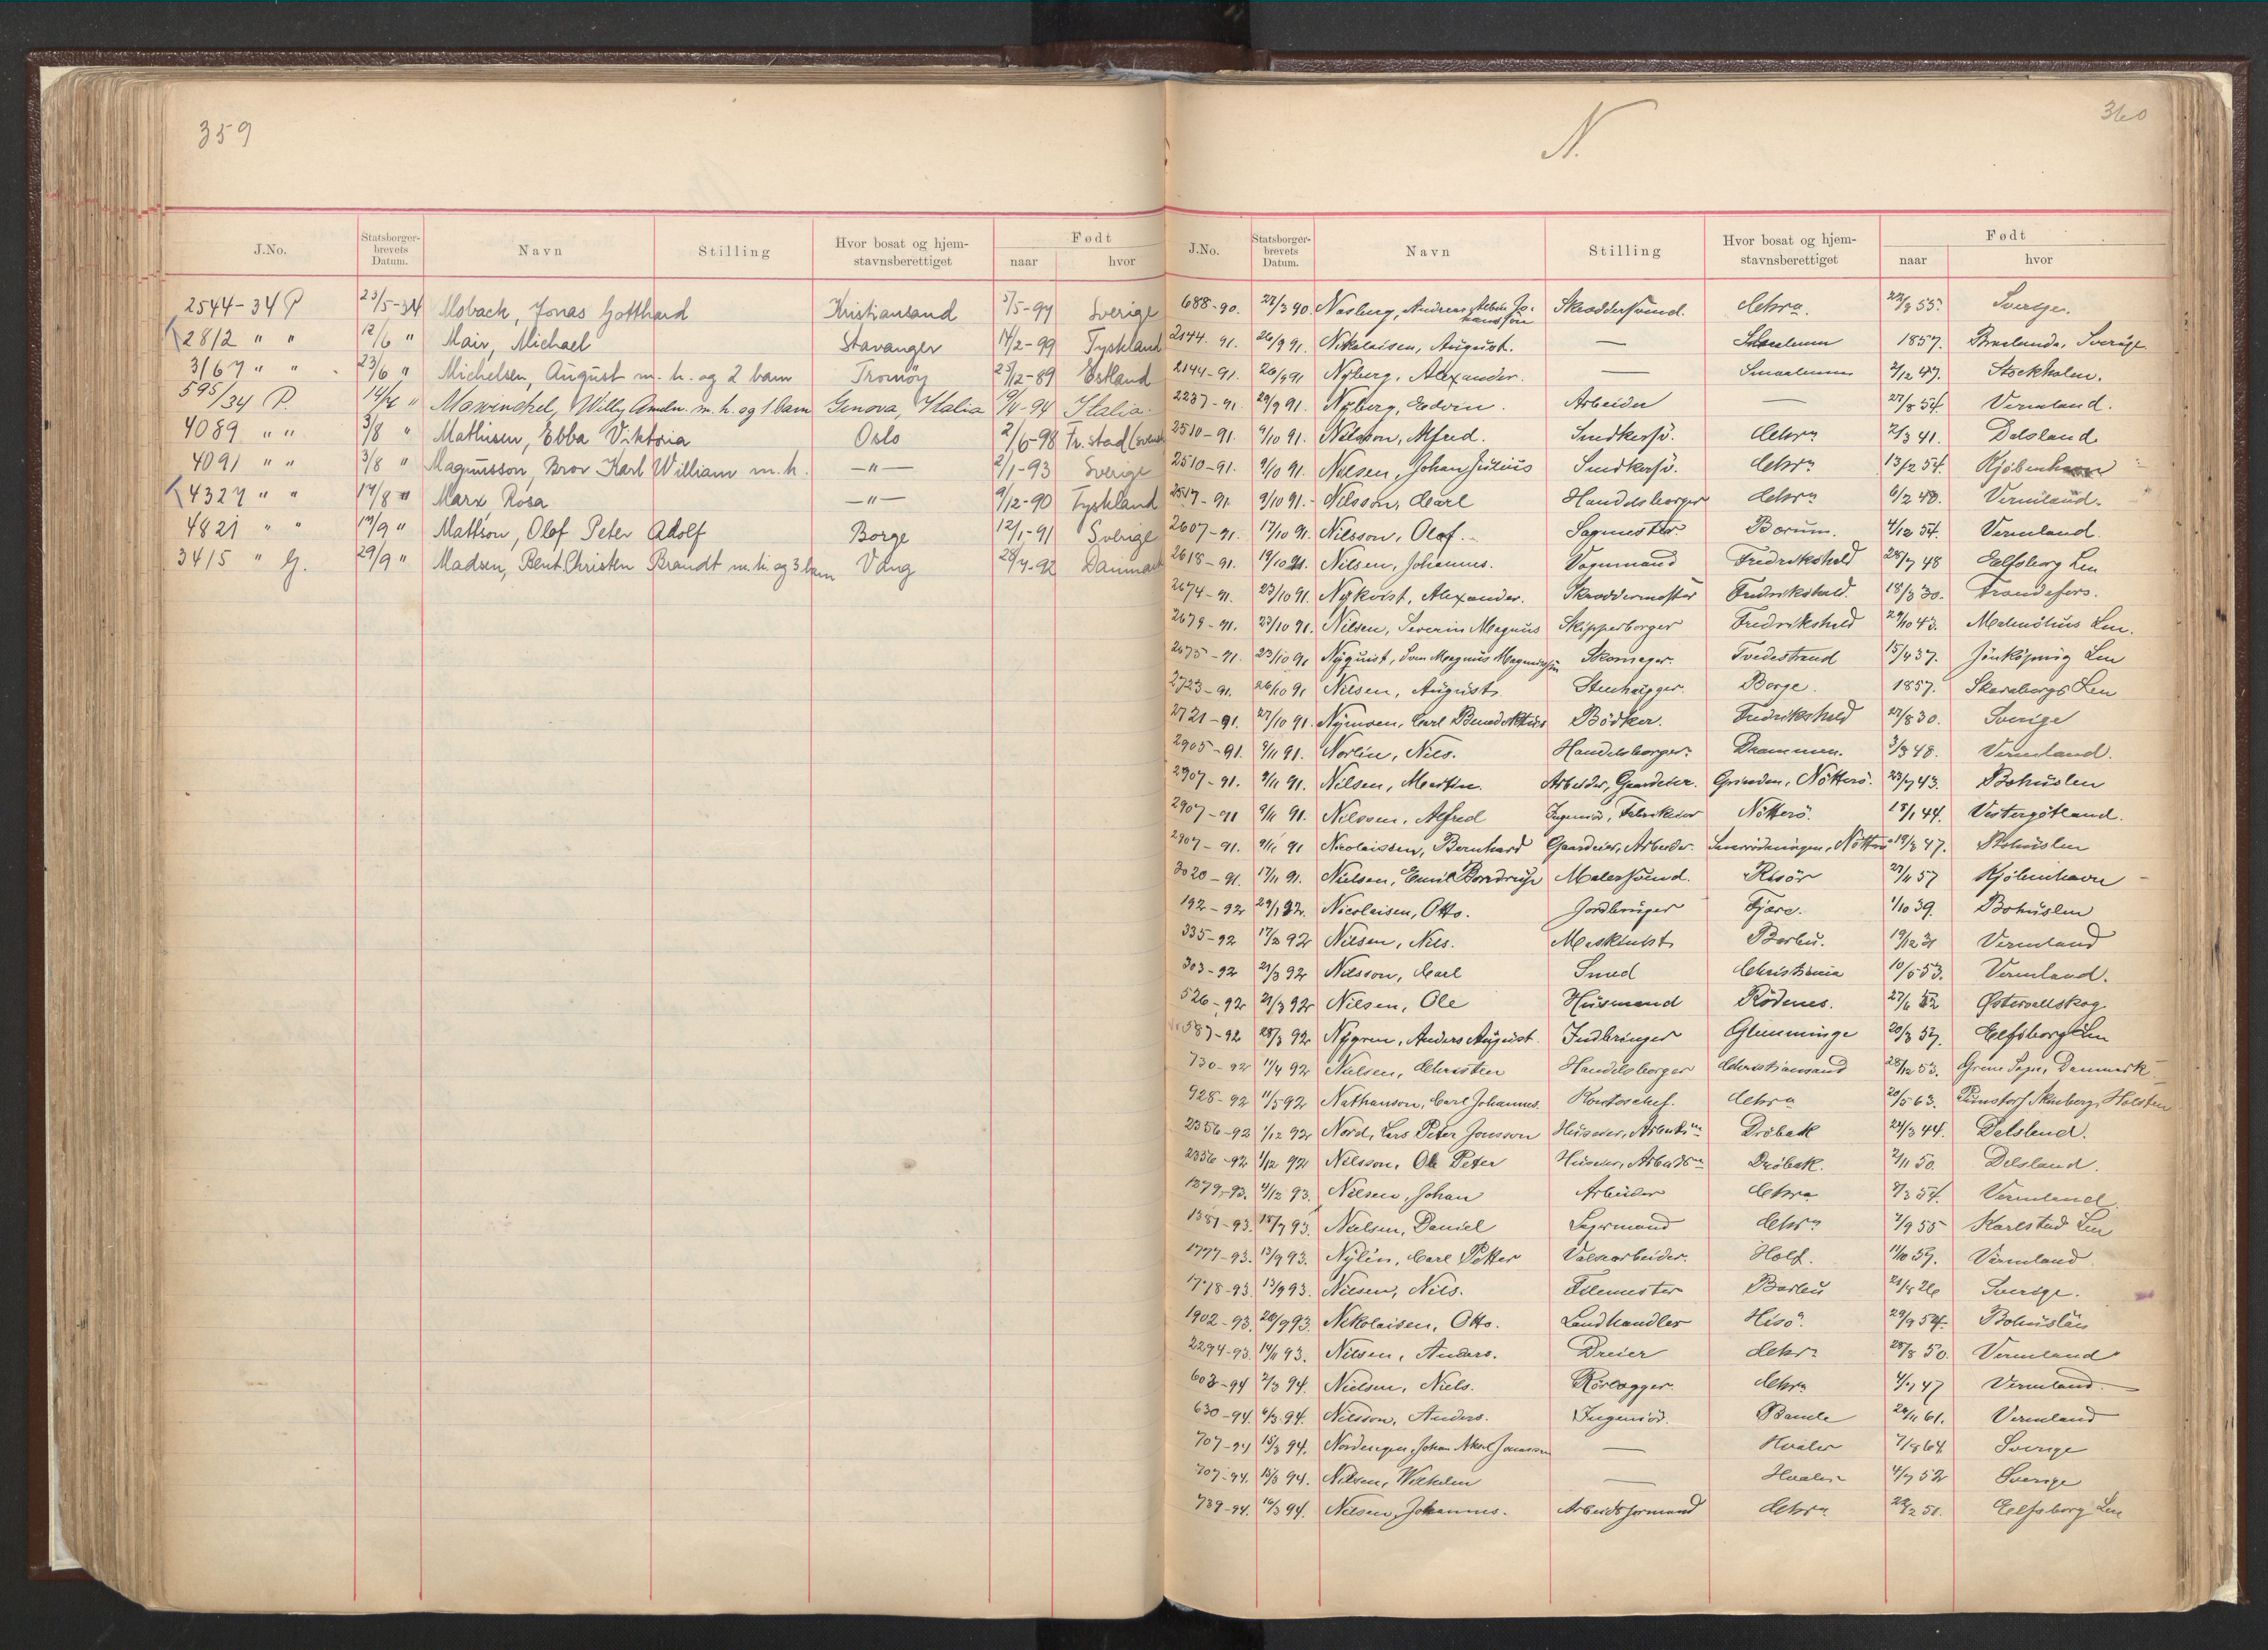 359
J.No. Statsborger-brevets Datum. Navn Stilling Hvor bosat og hjem-stavnsberettiget Født naar hvor
2544-34 P 23/5-34 Mobach, Jonas Gotthard Kristiansand 3/5-94 Sverige
2812 " " 12/6 " Mair, Michael Stavanger 14/2-99 Tyskland
3167 " " 23/6 " Michelsen, August m. h. og 2 barn Tromöy 25/12-89 Estland
595/34 P. 14/4 " Willy m. h. og 1 barn Genova, Italia 9/4-94 Italia.
4089 " " 3/8 " Mathisen, Ebba Viktoria Oslo 2/6-98 Fr.stad (svensk
4091 " " 3/8 " Magnusson, Bror Karl William m. h. —"— 2/1-93 Sverige
4327 " " 17/8 " Marx, Rosa —"— 9/12-90 Tyskland
4821 " " 19/9 " Mattson, Olof Peter Adolf Borge 12/1-91 Sverige
3415 " G. 29/9 " Madsen, Bent Christen Brandt m. h. og 3 barn Vang 28/7-92 Danmark
360
N.
J.No. Statsborger-brevets Datum. Navn Stilling Hvor bosat og hjem-stavnsberettiget Født naar hvor
688-90. 27/3 90. Nasberg, Andreas Albin Jo-hansson Skræddersvend. Chra. 22/8 55. Sverige.
2144. 91. 26/9 91. Nikolaisen, August. — Smaalenene 1857. Sverige
2144-91. 26/9 91 Nyberg, Alexander. — Smaalenene 7/12 47. Stockholm.
2237-91. 29/9 91. Nyberg, Edvin. Arbeider — 27/8 54. Vermland.
2510-91. 9/10 91. Nilsson, Alfred. Snedkersv. Chra 2/3 41. Dalsland
2510-91. 9/10 91. Nielsen, Johan Julius Snedkersv. Chra 13/2 54. Kjöbenhavn
2517-91. 9/10 91. Nilsson, Carl Handelsborger Chra 6/2 40. Vermland.
2607-91. 17/10 91. Nilsson, Olof. Sagmester. Bærum. 4/12 54. Vermland.
2618-91. 19/10 91. Nilsen, Johannes. Vognmand Fredrikshald 28/7 48 Elfsborg Len
2674-91. 23/10 91. Nykvist, Alexander. Skræddermester Fredrikshald 18/3 30.
2679-91. 23/10 91. Nilsen, Severin Magnus Skipperborger Fredrikshald 29/10 43. Malmöhus Len.
2675-91. 23/10 91 Nyquist, Sven Magnus Magnusson Skomager. Tvedestrand 15/4 37. Jönköping Len
2723-91. 26/10 91 Nilsen, August Stenhugger. Borge. 1857. Skaraborgs Len
2721-91. 27/10 91. Nymoen, Carl Benediktus Bödker. Fredrikshald 27/8 30. Sverige
2905-91. 9/11 91. Norlin, Nils. Handelsborger. Drammen. 3/3 48. Vermland.
2907-91. 9/11 91. Nilsen, Martin. Arbeider, Gaardeier. Grinden, Nötterö. 23/7 43. Bohuslen
2907-91 9/11 91. Nilsson, Alfred Ingeniör, Fabrikeier Nötterö. 18/1 44. Vestergötland.
2907-91. 9/11 91 Nicolaissen, Bernhard Gaardeier, Arbeider. Nötterö 19/3 47. Bohuslen
3020-91. 17/11 91. Nielsen, Emil Bondrup Malersvend. Risör 27/11 57 Kjöbenhavn
192-92 29/1 92. Nicolaisen, Otto. Jordbruger Fjære. 1/10 39. Bohuslen
335-92 17/2 92 Nilsen, Nils. Maskinist Barbu. 19/12 31 Vermland
303-92 21/3 92 Nilsson, Carl Smed Christiania 10/5 53. Vermland.
526-92 21/3 92 Nilsen, Ole Husmand Rödenes. 27/6 52 Østervallskog
587-92 28/3 92 Nygren, Anders August. Indbringer Glemminge 20/3 57. Elfsborg Len
730-92 11/4 92 Nielsen, Christen Handelsborger Christiansand 28/12 53. Grene Sogn, Danmark
928-92 11/5 92 Nathanson, Carl Johannes. Kontorchef. Chra 20/5 63. Holsten
2356-92 1/12 92 Nord, Lars Peter Jonsson Huseier, Arbeidsm Dröbak 24/3 44. Dalsland.
2356-92 1/12 92 Nilsson, Ole Peter Huseier, Arbeidsm Dröbak. 2/11 50. Dalsland.
1379-93. 4/12 93. Nilsen, Johan Arbeider Chra 7/3 54. Vermland
1381-93. 18/7 93. Nielsen, Daniel Lagermand Chra 7/9 55 Karlstad Len
1777-93. 13/9 93. Nylin, Carl Petter Valsearbeider. Holt. 11/10 57. Vermland
1778-93. 13/9 93. Nilsen, Nils. Filemester Barbu 21/8 26 Sverige.
1902-93. 26/9 93. Nikolaisen, Otto. Landhandler Hisö. 29/9 54. Bohuslän
2294-93. 14/11 93. Nilsen, Anders. Dreier Chra 28/8 50. Vermland
603-94 2/3 94. Nielsen, Niels. Rörlægger. Chra 4/7 47 Vermland.
630-94. 6/3 94. Nilsson, Anders. Ingeniör. Bamle 24/11 61. Vermland
707-94 15/3 94. Nordengen, Johan Aksel Jonassen — Hvaler 7/8 64 Sverige
707-94. 15/3 94. Nilsen, Wilhelm — Hvaler 4/7 52 Sverige
739-94. 16/3 94. Nilsen, Johannes. Arbeidsformand Chra 22/2 50. Elfsborg Len